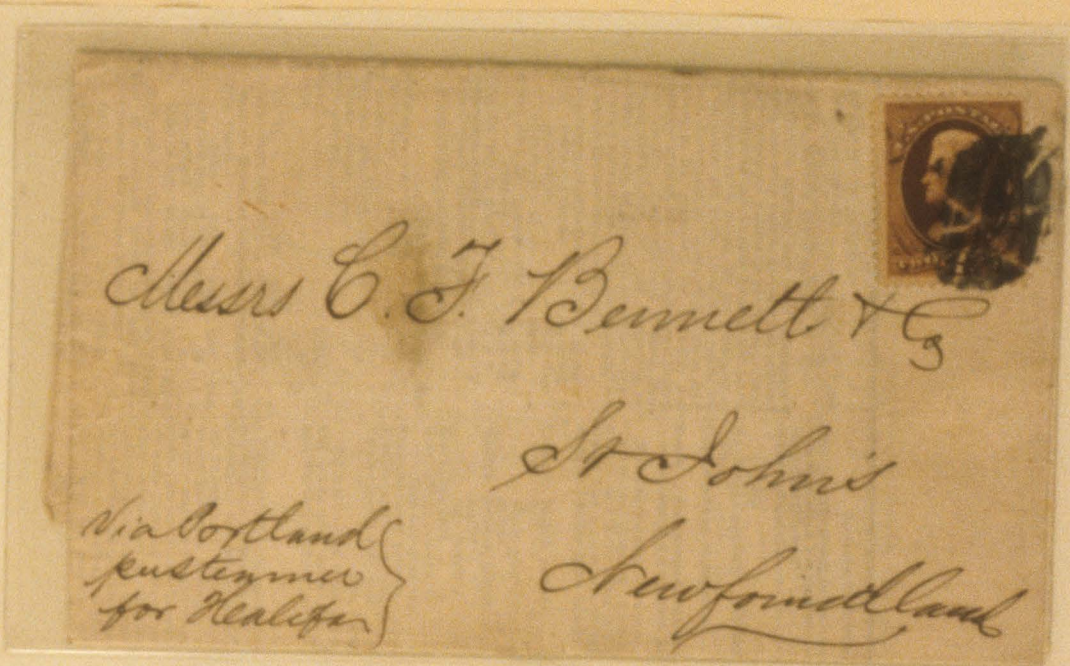 U.S. POSTAGE
Messrs C. F. Bennett & Co
St John's
Newfoundland
Via Portland
per steamer
for Healifax